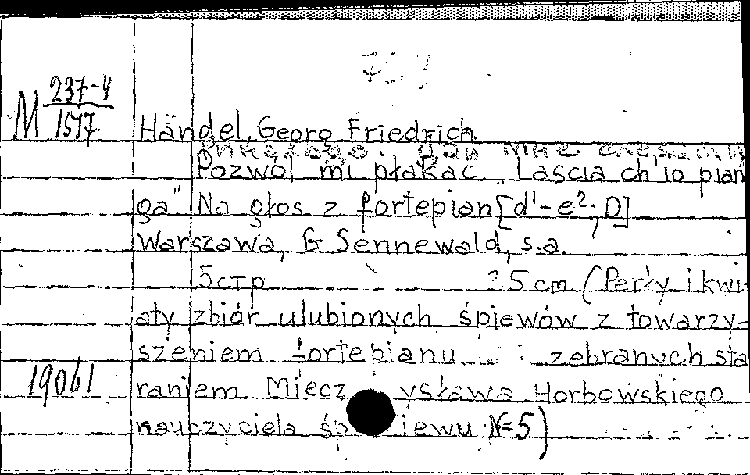 M 237-4
1517
Händel, Georg Friedrich
Pozwól mi płakać. "Lascia ch io pian
ga" Na głos z fortepian [d¹-e²; D]
Warszawa, G Sennewald, s.a.
5 стр 35 cm (Perły i kwi
aty zbiór ulubionych śpiewów z towarzy-
szeniem fortepianu zebranych sta
raniem Mieczysława Horbowskiego
19061
nauczyciela śpiewu. N-5)